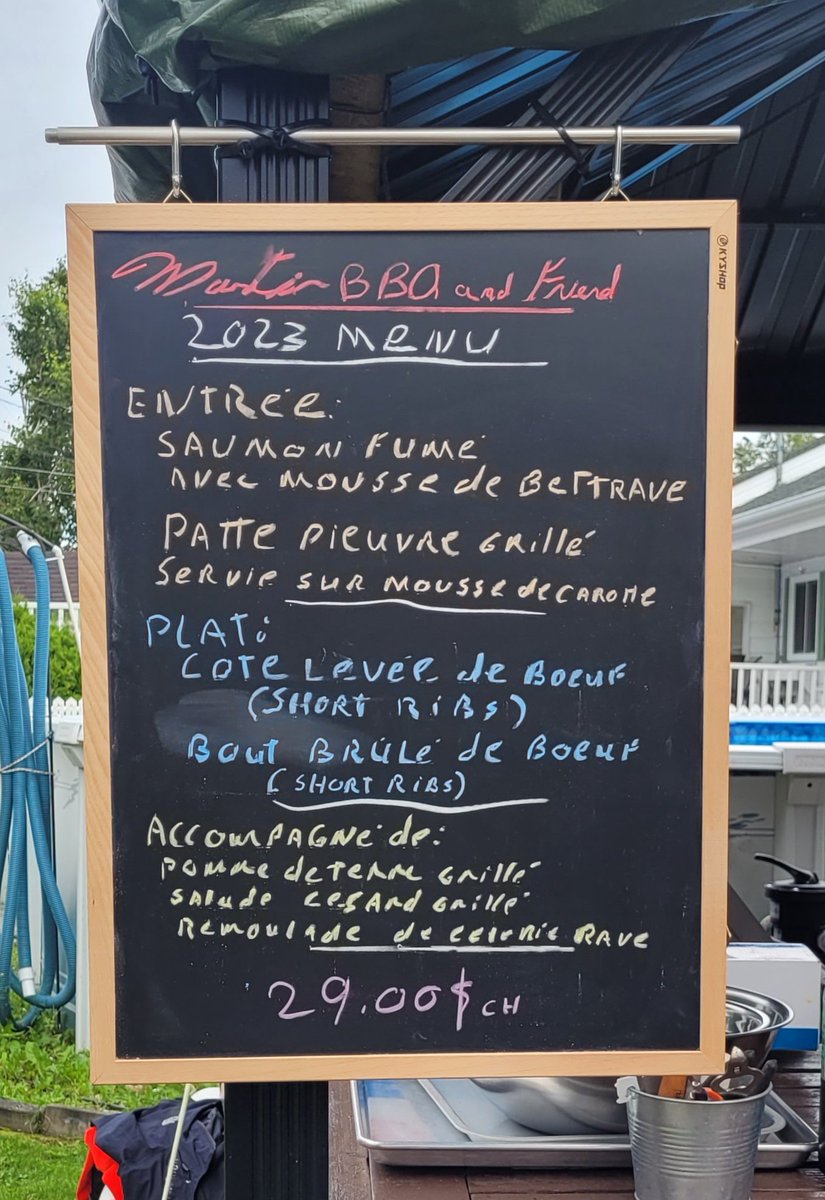 Martin BBQ and Friend
2023 MENU
ENTRÉE:
SAUMON FUMÉ
AVEC MOUSSE de BETTRAVE
PATTE PIEUVRE GRILLÉ
SERVIE SUR MOUSSE de CAROTTE
PLAT:
COTE LEVÉE de BOEUF
(SHORT RIBS)
BOUT BRÛLÉ DE BOEUF
(SHORT RIBS)
ACCOMPAGNÉ de:
POMME de TERRE GRILLÉ
SALADE CESARD GRILLÉ
REMOULADE de CELERIE RAVE
29.00$ CH
KYSHop